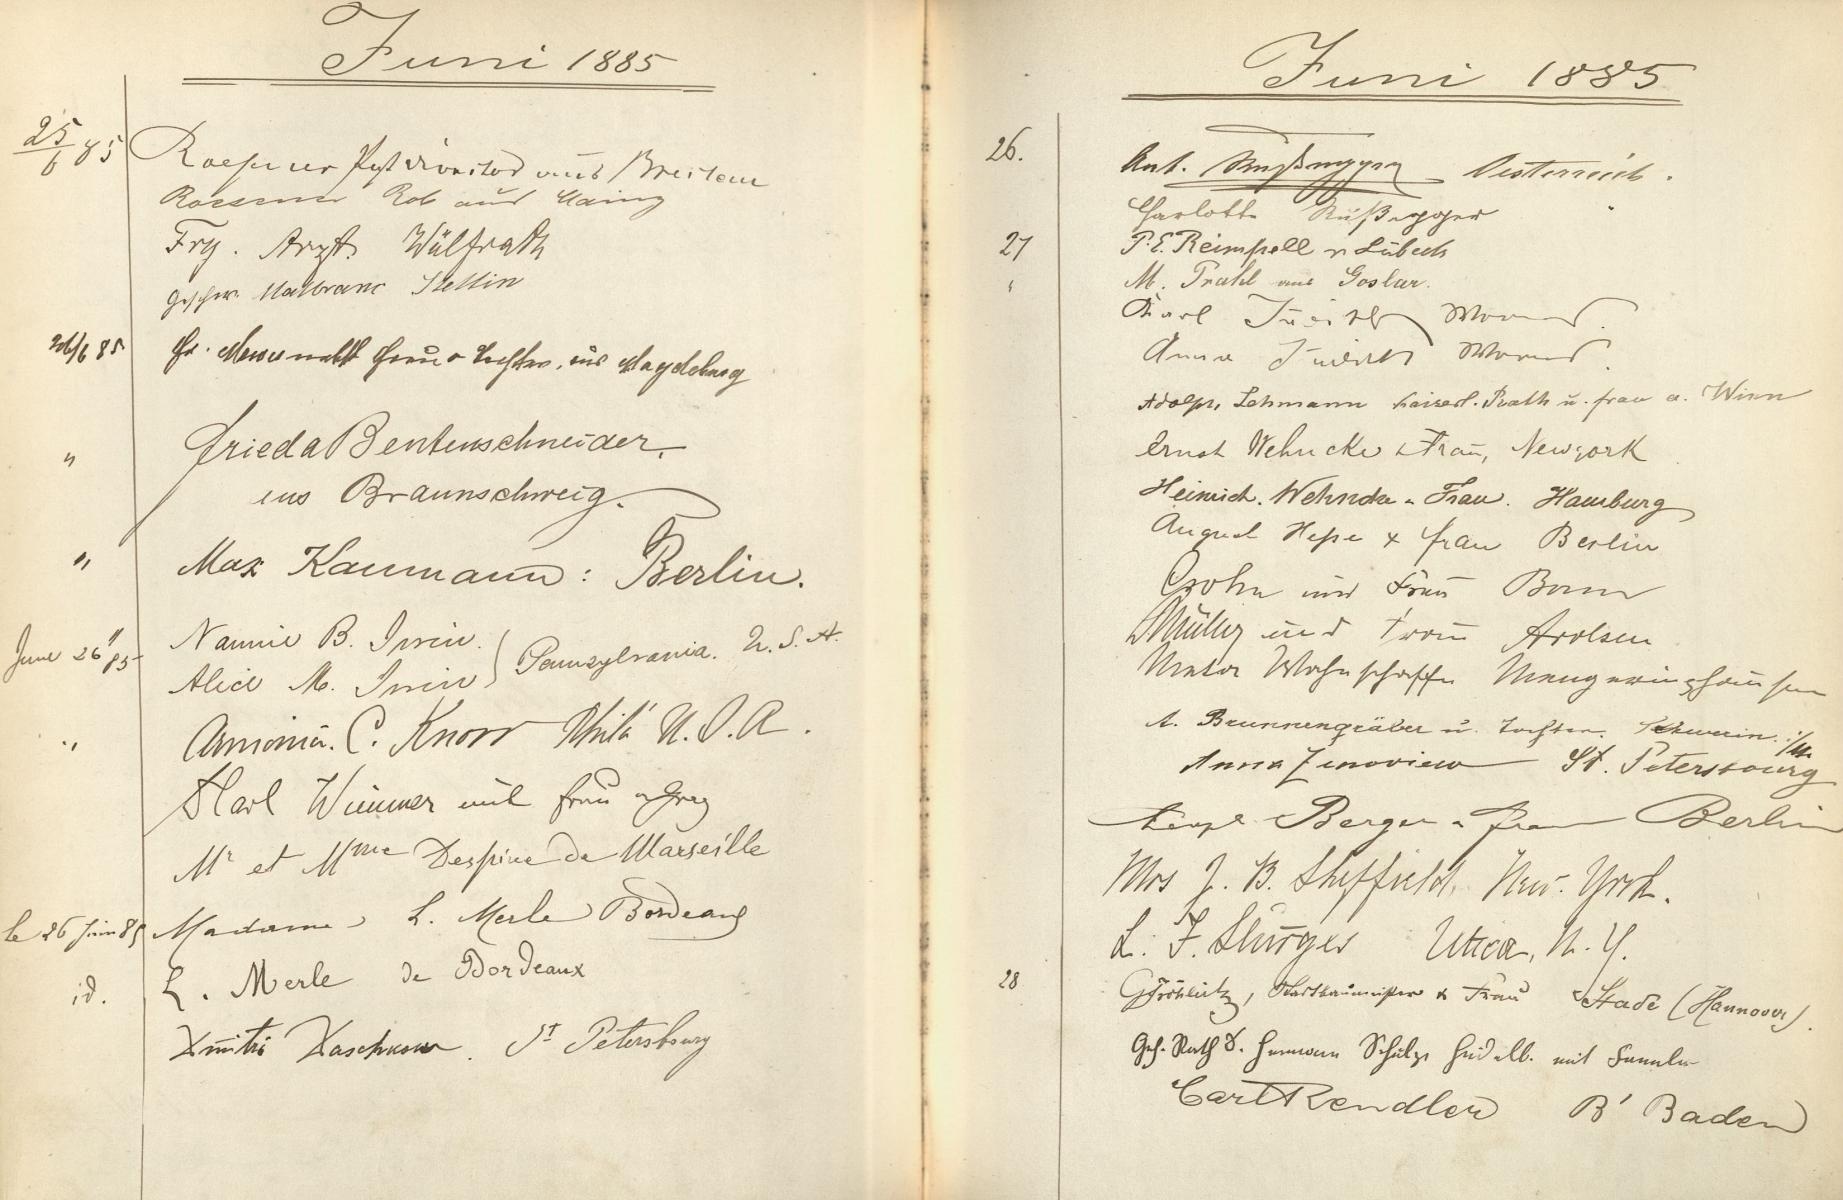 Juni 1885
25/6 85
aus
Rob aus Mainz
Frz. Arzt. Wülfrath
Geschw. Malbranc Stettin
26/6 85 Frau u Tochter, aus Magdeburg
" Frieda Bentenschneider.
aus Braunschweig.
" Max Kaumann: Berlin.
" Nannie B. Irwin.
June 26 85 Alice M. Irwin } Pennsylvania. U.S.A.
" C. Knorr Phila U.S.A.
Karl Wimmer mit Frau
Mr et Mme Despine de Marseille
le 26 Juin 85 Madame L. Merle Bordeaux
id. L. Merle de Bordeaux
Dmitri Daschkow. St Petersbourg
Juni 1885
26. Ant. Rußegger Oesterreich.
Charlotte Rußegger "
27 P. E. Reimpell v Lübeck
" M. Prahl aus Goslar.
Karl Worms.
Anna Worms.
Adolph Lehmann kaiserl. Rath u. Frau a. Wien
Ernst Wehncke & Frau, Newyork
Heinrich. Wehncke u Frau. Hamburg
August Hesse & Frau Berlin
und Frau Bonn
Müller und Frau Arolsen
Wahnschaffe Mengeringhausen
A. Brunnengräber u. Tochter. Schwerin i/M
Anna Zinoview St. Petersbourg
Berger u Frau Berlin
Mrs J. B. Sheffield, New-York.
L. F. Utica, N. Y.
28 Stadtbaumeister & Frau Stade (Hannover).
Geh. Rath D. Hermann Schulze Heidelb. mit Familie
Carl Rendler B' Baden